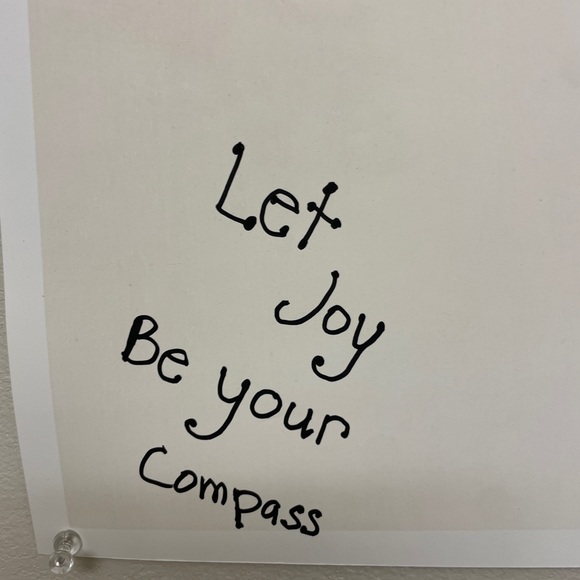 Let
Joy
Be your
Compass